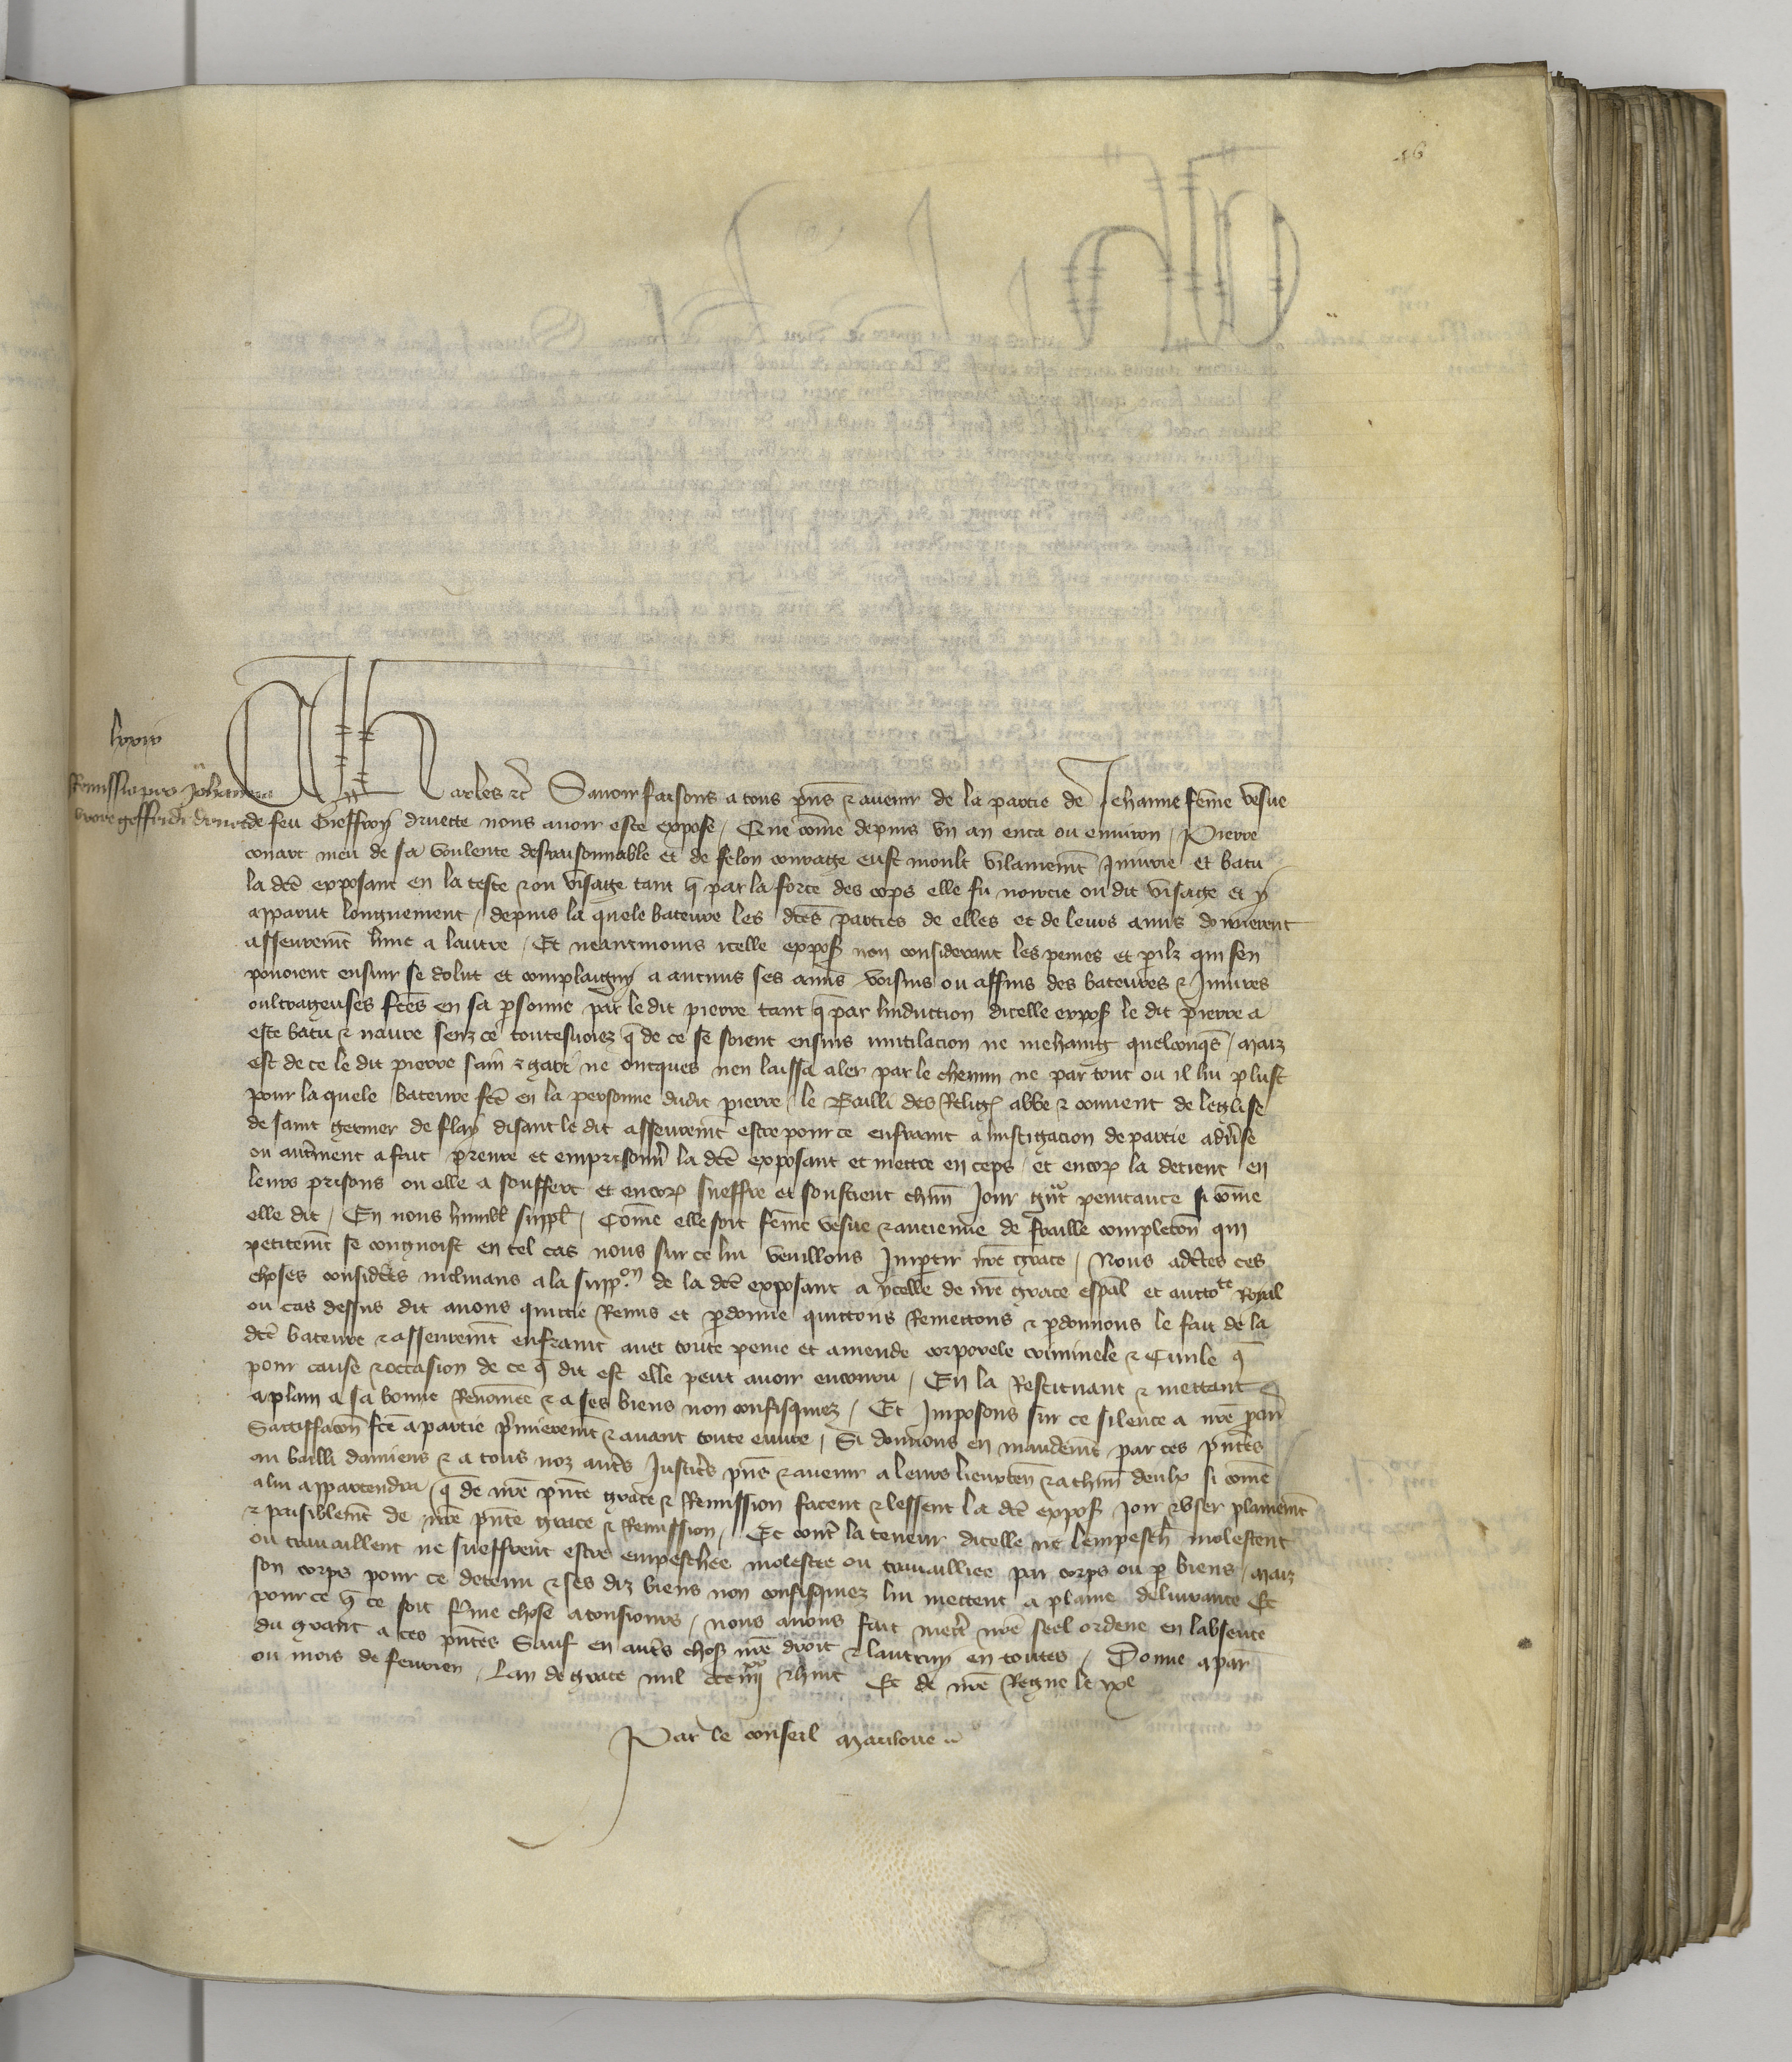 46
lxxiv
Remissio pro Johanna
uxore geffridi druet
Charles etc̃ Sauoir faisons a tous p̃ns ⁊ auenir de la partie de Jehanne fem̃e vesue
de feu Gieffroy druecte nous auoir este expose / Que com̃e depuis vn an enca ou enuiron / Pierre
conart meu de sa voulente desraisonnable et de felon courage eust moult vilainem̃t Jniurie et batu
la dc̃e exposant en la teste ⁊ ou visage tant q̃ par la force des cops elle fu noircie ou dit visage et y
apparut longuement / depuis la quele bateure les dc̃es parties de elles et de leurs amis donnerent
asseurem̃t lune a lautre / Et neantmoins icelle expos̃ non considerant les peines et p̃ilz qui sen
pouoient ensuir se dolut et complaigny a aucuns ses amis voisins ou affins des bateures ⁊ Jniures
oultrageuses fc̃es en sa p̃sonne par le dit pierre tant q̃ par linduction dicelle expos̃ le dit pierre a
este batu ⁊ naure senz ce toutesuoiez q̃ de ce se soient ensuis mutilacion ne mehaing quelconq̃s / maiz
est de ce le dit pierre sain ⁊ gari ne oncques nen laissa aler par le chemin ne par tout ou il lui plust
pour la quele bateure fc̃e en la personne dudit pierre / le Bailli des Relig̃ abbe ⁊ conuent de leglise
de saint germer de flay disant le dit asseurem̃t estre pour ce enfraint a linstigacion de partie adu̾se
ou autrement a fait prenre et emprisonn̾ la dc̃e exposant et mettre en ceps / et encor̃ la detient en
leurs prisons ou elle a souffert et encor̃ sueffre et soustient chũn Jour gñt penitance si com̃e
elle dit / En nous humbl̃ suppl̃ / Com̃e elle soit fem̃e vesue ⁊ ancienne de fraille complecõn qui
petitem̃t se congnoist en tel cas nous sur ce lui vueillons Jmp̃tir nr̃e grace / Nous adc̃tes ces
choses considẽes inclinans a la supp.on de la dc̃e exposant a ycelle de nr̃e grace esp̃al et aucto.te Royal
ou cas dessus dit auons quittie Remis et p̃donne quittons Remettons ⁊ p̃donnons le fait de la
dc̃e bateure ⁊ asseurem̃t enfraint auec toute peine et amende corporele criminele ⁊ Ciuile q̃
pour cause ⁊ occasion de ce q̃ dit est elle peut auoir encouru / En la Restituant ⁊ mettant
a plain a sa bonne Renom̃ee ⁊ a ses biens non confisquiez / Et Jmposons sur ce silence a nr̃e p̃cur̃
Sattiffacõn fc̃e a partie p̃mierem̃t ⁊ auant toute euure / Si donnons en mandem̃t par ces p̃ntes
au bailli damiens ⁊ a tous noz aut̃s Justic̃s p̃ns ⁊ auenir a leurs lieuxten̾ ⁊ a chũn deulx si com̃e
a lui appartendra / q̃ de nr̃e p̃nte grace ⁊ Remission facent ⁊ lessent la dc̃e expos̃ Joir ⁊ vser plainem̃t
⁊ paisiblem̃t de nr̃e p̃nte grace ⁊ Remission / Et contr̃ la teneur dicelle ne lempesch̃ molestent
ou trauaillent ne sueffreñt estre empeschee molestee ou trauailliee par corps ou p̃ biens / maiz
son corps pour ce detenu ⁊ ses diz biens non confisquiez lui mettent a plaine deliurance Et
pour ce q̃ ce soit ferme chose a tousiours / nous auons fait mectr̃ nr̃e seel ordene en labsence
du grant a ces p̃ntes Sauf en aut̃s chos̃ nr̃e droit ⁊ lautruy en toutes / Donne a par̃
ou mois de feurier / Lan de grace mil ccc iiijxx ⁊ huit Et de nr̃e Regne le ixe
Par le conseil Mauloue